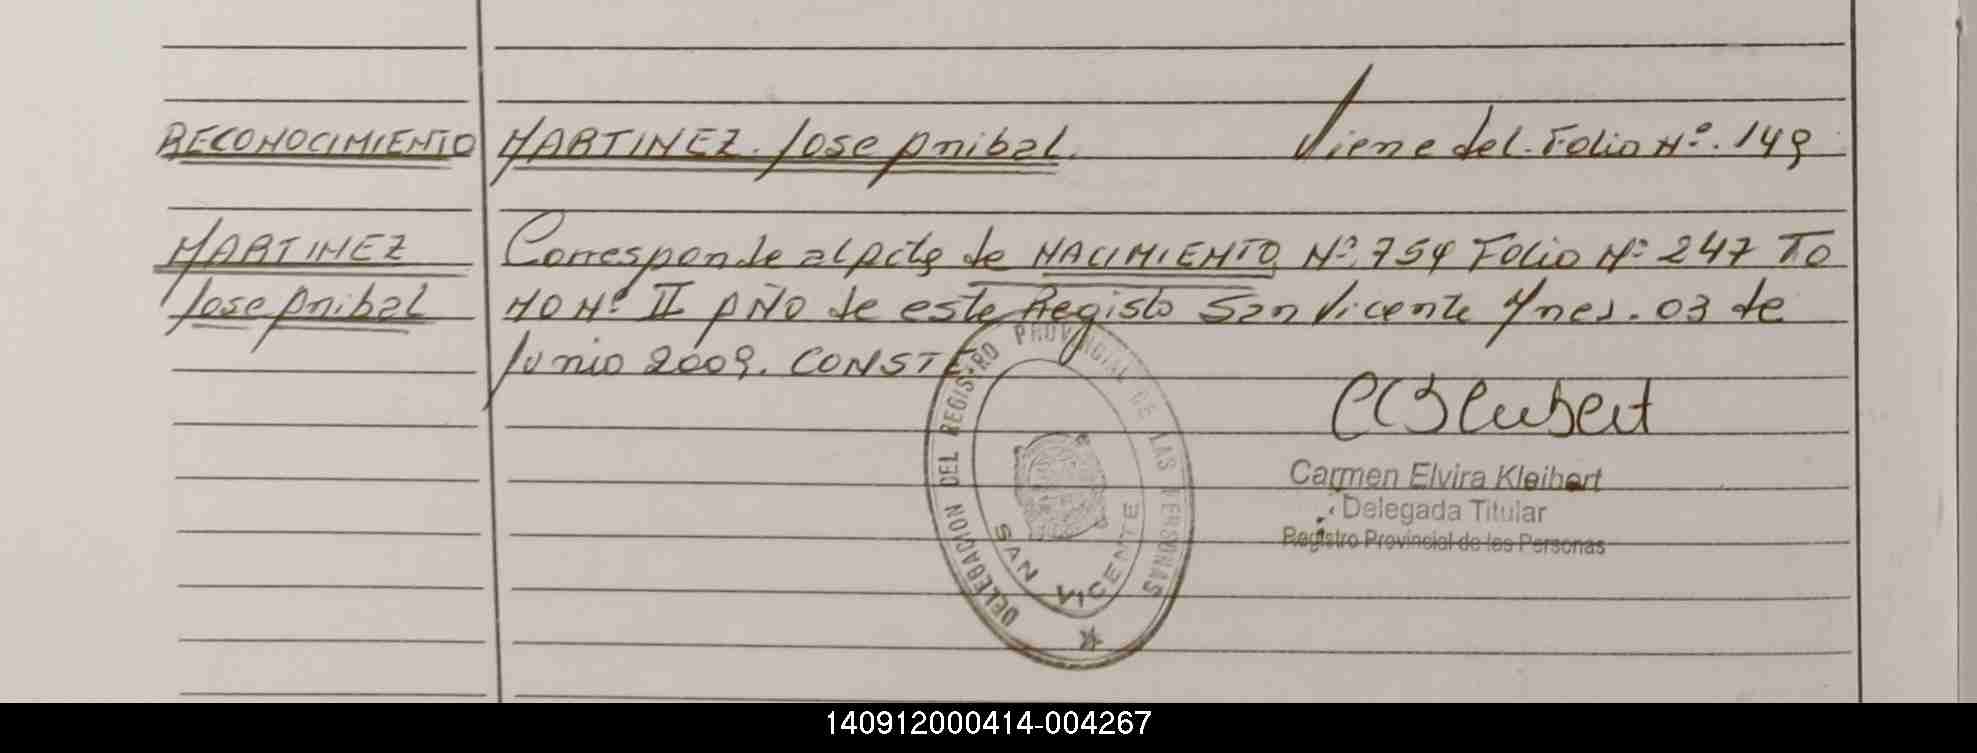 RECONOCIMIENTO MARTINEZ. Jose Anibal. Viene del. Folio Nº. 149
MARTINEZ Corresponde al Acta de NACIMIENTO Nº. 754 Folio Nº 247 TO
Jose Anibal MO Nº II AÑO de este Registo San Vicente 03 de
Junio 2009. CONSTE
DELEGACION DEL REGISTRO PROVINCIAL DE LAS PERSONAS
SAN VICENTE
Carmen Elvira Kleibert
Delegada Titular
Registro Provincial de las Personas
140912000414-004267